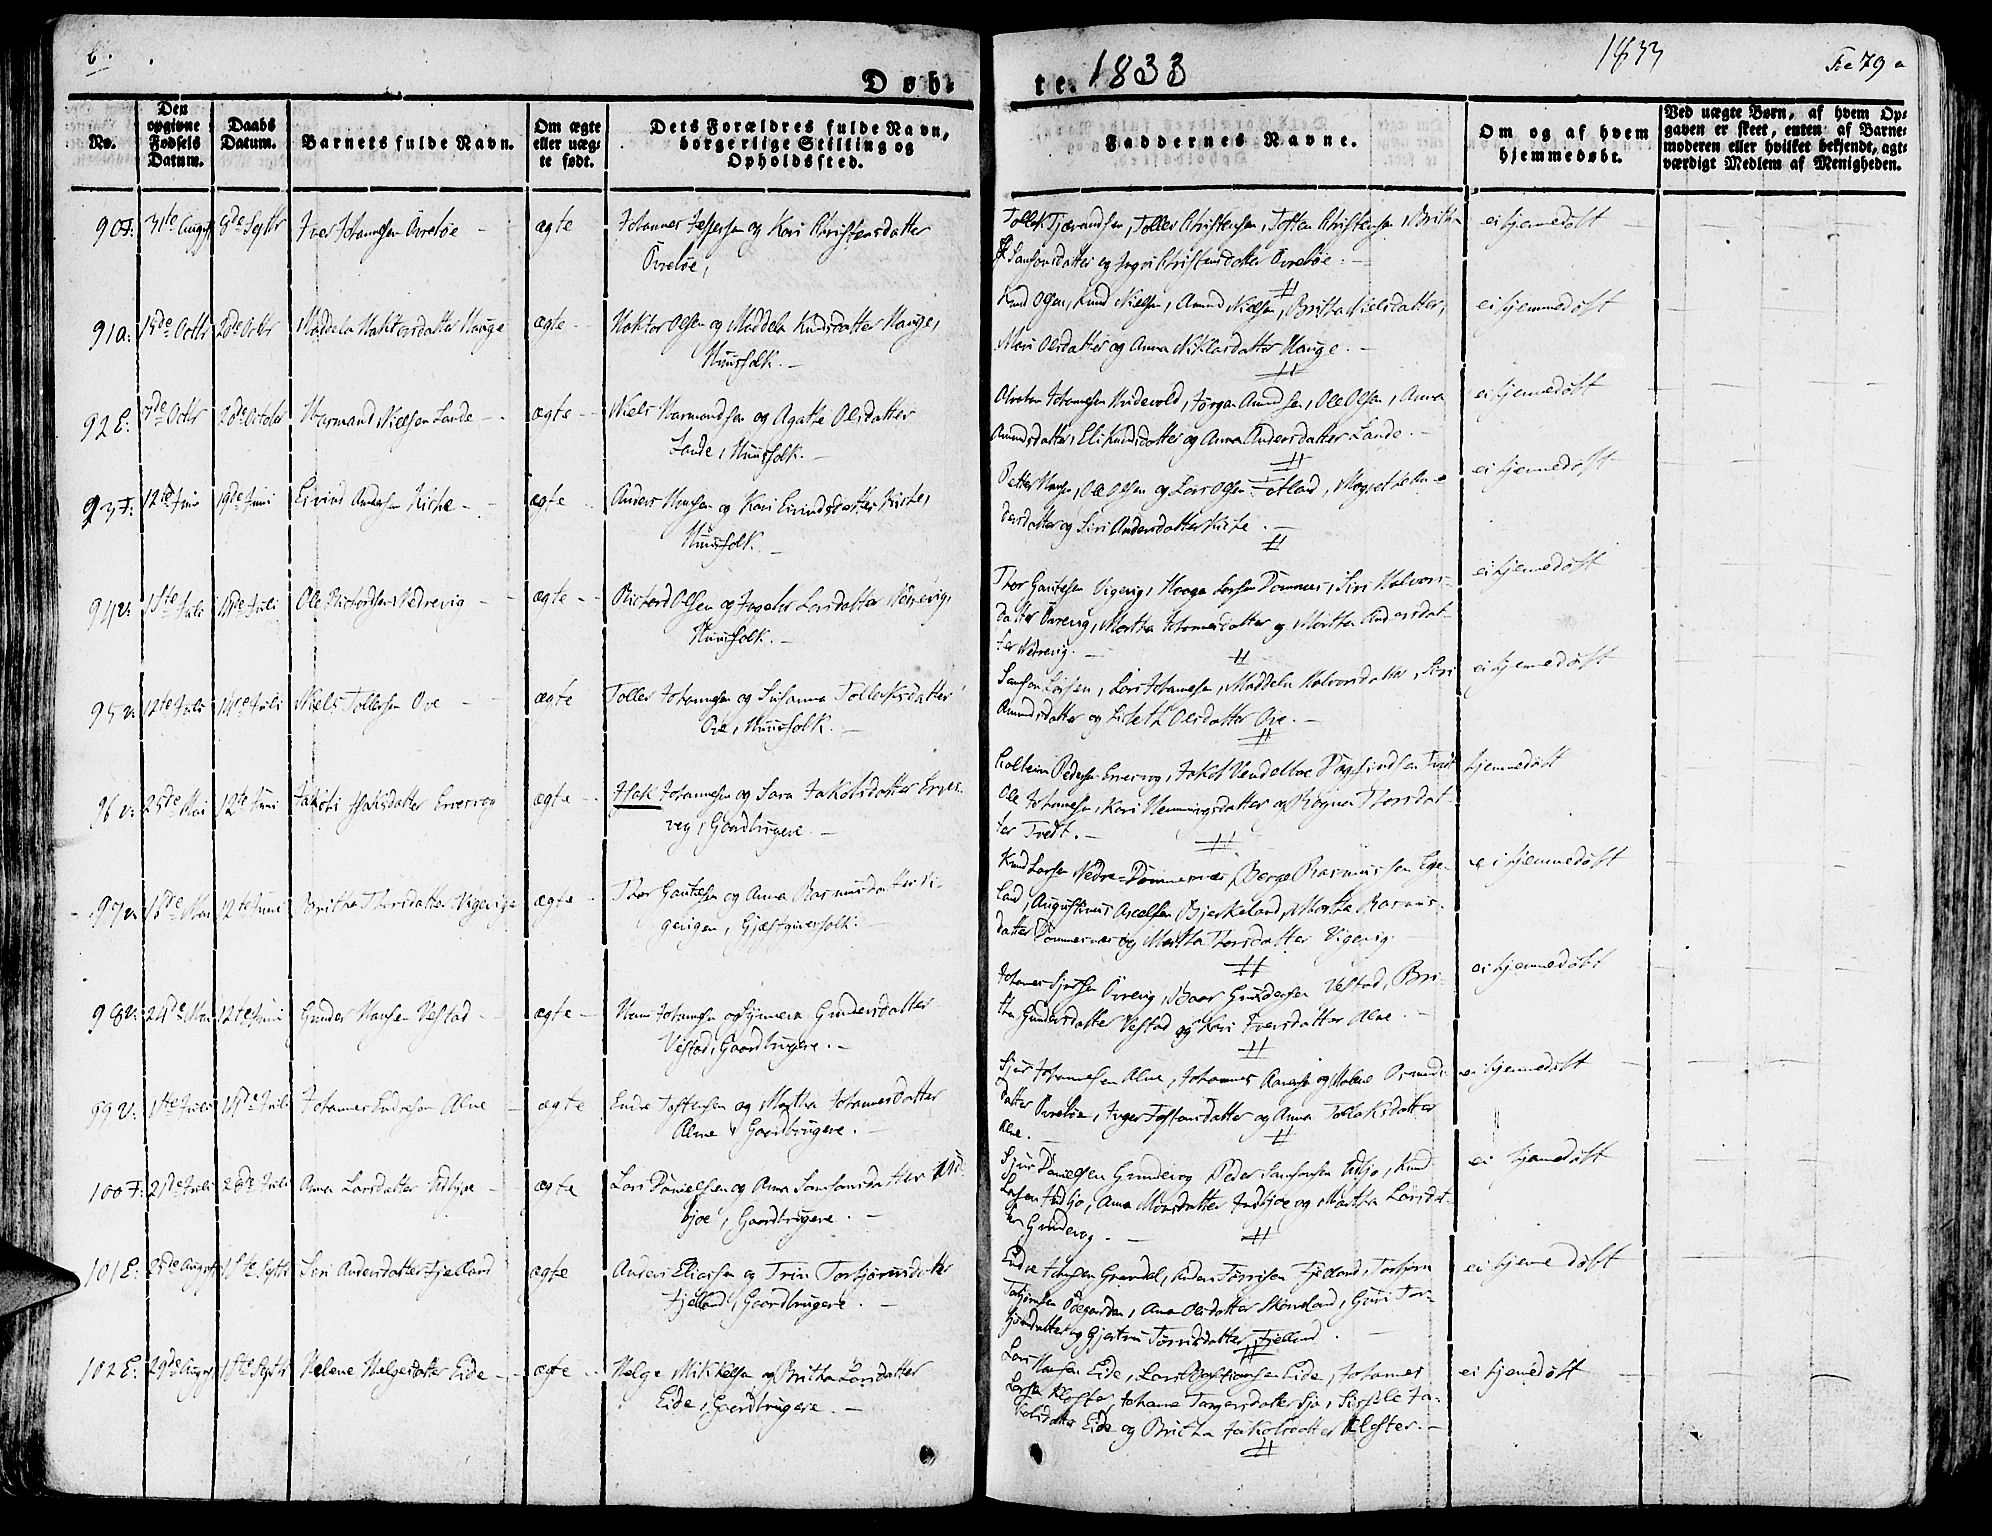 Døb-
te. 1833
1833
79
No.
Den opgivne Fødsels Datum.
Daabs Datum.
Barnets fulde Navn.
Om ægte eller uægte født.
Dets Forældres fulde Navn, borgerlige Stilling og Opholdssted.
Faddernes Navne.
Om og af hvem hjemmedøbt.
Ved uægte Børn, af hvem Opgaven er skeet, enten af Barnemoderen eller hvilket bekjendt, agtværdigt Medlem af Menigheden.
90 F: 31te August 8de Septbr Iver Johannesen Øvrebøe ægte Johannes Jespersen og Kari Christensdatter
Øvrebøe,
Tollak Tjerandsen, Toller Christensen, Tosten Christensen, Britha
Samsonsdatter og Christensdatter Øvrebøe.
ei hjemmedøbt
91 a: 15de Octbr 20de Octbr Maddela Haktorsdatter Hauge ægte Haktor Olsen og Maddela Knudsdatter Hauge,
Huusfolk.
Knud Olsen, Knud Nielsen, Amund Nielsen, Britta Nielsdatter,
Mari Olsdatter og Anna Niklasdatter Hauge.
ei hjemmedøbt
92 E: 7de Octbr 20de October Vormand Nielsen Lande ægte Niels Vormandsen og Agathe Olsdatter
Lande, Huusfolk.
Johannesen Hidevold, Jørgen Amundsen, Ole Olsen, Anna
Amundsdatter, Eli Knudsdatter og Anna Andersdatter Lande.
ei hjemmedøbt
93 F: 12te Juni 19de Juni Eivind Andersen Kirke ægte Anders Hansen og Kari Eivindsdatter Kirke,
Huusfolk.
Petter Hansen, Ole Olsen og Lars Olsen
dersdatter og Siri Andersdatter Kirke.
ei hjemmedøbt
94 v: Juli 14de Juli Ole Richordsen Nedrevig ægte Richord Olsen og Ingeborg Larsdatter Nedrevig,
Huusfolk.
Thor Gautesen Vigevig, Haaga Larsen Dommernes, Siri Halvors-
datter Øvrevig, Martha Johannesdatter og Martha Andersdat-
ter Nedrevig.
ei hjemmedøbt
95 v: 12te Juli 14de Juli Niels Tollersen Ove ægte Toller Johannesen og Susanna Tollaksdatter
Ove, Huusfolk.
Samson Larsen, Lars Johannesen, Maddela Halvorsdatter, Siri
Amundsdatter og Lisbeth Olsdatter Ove.
ei hjemmedøbt
96 v: 25de Mai 12te Juni Jakobi Isaksdatter Ervesvog ægte Isak Johannesen og Sara Jakobsdatter Erves-
vog, Gaardbrugere
Pedersen Ervesvog, Jakob Vendelboe Dagfindsen Tvedt
Ole Johannesen, Kari Hemmingsdatter og Ragna Thorsdat-
ter Tvedt.
hjemmedøbt
97 v: Mai 12te Juni Britha Thorsdatter Vigevig ægte Thor Gautesen og Anna Rasmusdatter Vi-
gevigen, Gjæstgiverfolk.
Knud Larsen Nedre-Dommernes, Børge Rasmussen Ege-
land, Augustinus Axelsen Bjerkeland, Martha Rasmus-
datter Dommernes og Martha Thorsdatter Vigevig
ei hjemmedøbt
98 v: 24de Mai 12te Juni Gunder Hansen Vestad ægte Hans Johannesen og Synneva Gundersdatter
Vestad, Gaardbrugere.
Johannes Sjursen Øvrevig, Baar Gundersen Vestad, Bri-
tha Gundersdatter Vestad og Kari Iversdatter Alne.
ei hjemmedøbt
99 v: 1te Juli 14de Juli Johannes Endresen Alne ægte Endre Tostensen og Martha Johannesdatter
Alne, Gaardbrugere.
Sjur Johannesen Alne, Johannes og Malene Osmunds-
datter Øvrebøe, Inger Tostensdatter og Anna Tollaksdatter
Alne.
ei hjemmedøbt
100 F: 21de Juli 28de Juli Anna Larsdatter ægte Lars Danielsen og Anna Samsonsdatter
bjoe, Gaardbrugere.
Sjur Danielsen Gundevog Peder Samsonsen Knud
Larsen Anna Monsdatter og Martha Larsdat-
ter Gundevog.
ei hjemmedøbt
101 E: 25de August 15te Septbr Siri Andersdatter Fjelland ægte Anders Eliassen og Trine Torbjørnsdatter
Fjelland, Gaardbrugere.
Endre Hansen Anders Tørrisen Fjelland, Torbjørn
Torbjørnsen Ødegarden, Anna Olsdatter Skoneland, Guri Tor-
bjørnsdatter og Gjertrui Tørrisdatter Fjelland.
ei hjemmedøbt
102 E: 29de August 15te Septbr Helene Helgesdatter Eide ægte Helge Mikkelsen og Britha Larsdatter
Eide, Gaardbrugere.
Lars Hansen Eide, Lars Eide, Johannes
Larsen Kloster, Johanna Torgersdatter Siø, Sissele Ja-
kobsdatter Eide og Britha Jakobsdatter Kloster.
ei hjemmedøbt